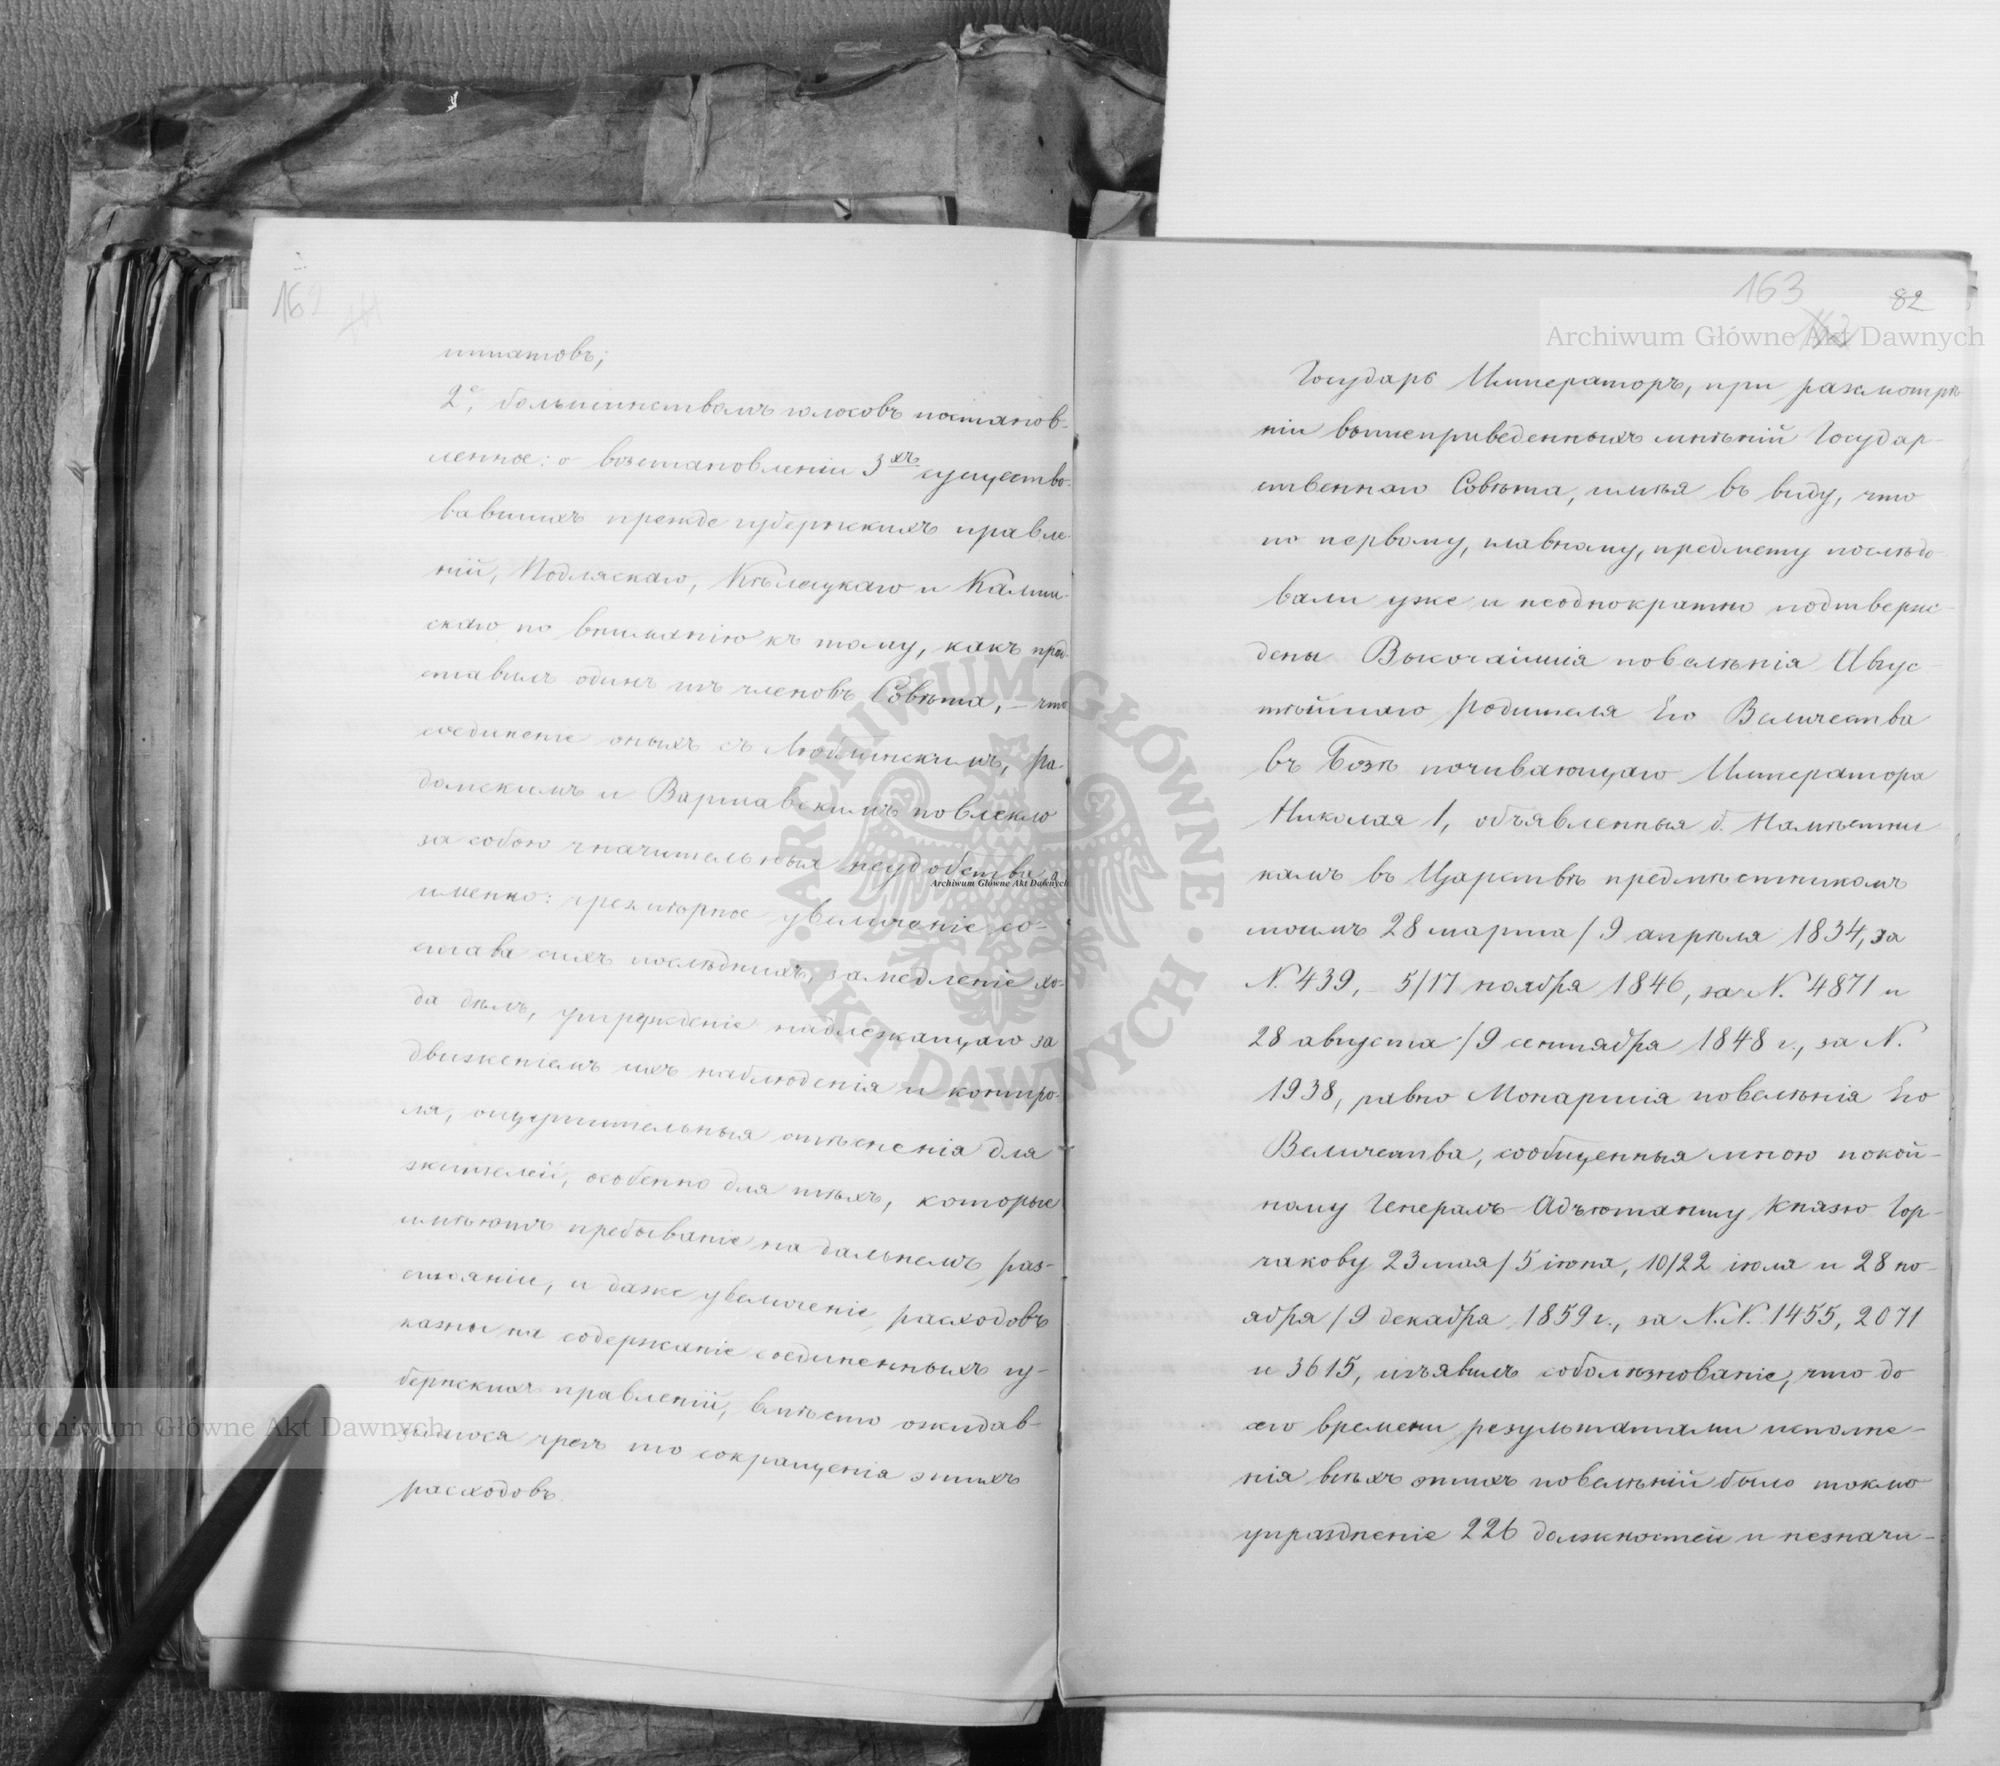 162
штатовъ;
2е, большинствомъ голосовъ постанов-
ленное: о возстановленіи 3хъ существо-
вавшихъ прежде губернскихъ правле-
ній, Подляскаго, Кѣлецкаго и Калиш-
скаго, по вниманію къ тому, какъ пред-
ставилъ одинъ изъ членовъ Совѣта, – что
соединеніе оныхъ съ Люблинскимъ, Ра-
домскимъ и Варшавскимъ повлекло
за собою значительныя неудобства, а
именно: чрезмѣрное увеличеніе со-
става сихъ послѣднихъ, замедленіе хо-
да дѣлъ, затрудненіе надлежащаго за
движеніемъ ихъ наблюденія и контро-
ля, ощутительныя стѣсненія для
жителей, особенно для тѣхъ, которые
имѣютъ пребываніе на дальнемъ раз-
стояніи, и даже увеличеніе расходовъ
казны на содержаніе соединенныхъ гу-
бернскихъ правленій, вмѣсто ожидав-
шагося чрезъ то сокращенія этихъ
расходовъ.
163
82
Государь Императоръ, при разсмотрѣ-
ніи вышеприведенныхъ мнѣній Государ-
ственнаго Совѣта, имѣя въ виду, что
по первому, главному, предмету послѣдо-
вали уже и неоднократно подтверж-
дены Высочайшія повелѣнія Авгус-
тѣйшаго Родителя Его Величества
въ Бозѣ почивающаго Императора
Николая I, объявленныя б. Намѣстни-
камъ въ Царствѣ предмѣстникомъ
моимъ 28 марта / 9 апрѣля 1834, за
N. 439, 5/17 ноября 1846, за N. 4871 и
28 августа / 9 сентября 1848 г., за N.
1938, равно Монаршія повелѣнія Его
Величества, сообщенныя мною покой-
ному Генералъ-Адъютанту Князю Гор-
чакову 23 мая / 5 іюня, 10/22 іюля и 28 но-
ября / 9 декабря 1859 г., за N.N. 1455, 2071
и 3615, изъявилъ соболѣзнованіе, что до
сего времени результатами исполне-
нія всѣхъ этихъ повелѣній было токмо
упраздненіе 226 должностей и незначи-
Archiwum Główne Akt Dawnych
Archiwum Główne Akt Dawnych
Archiwum Główne Akt Dawnych
ARCHIWUM GŁÓWNE AKT DAWNYCH